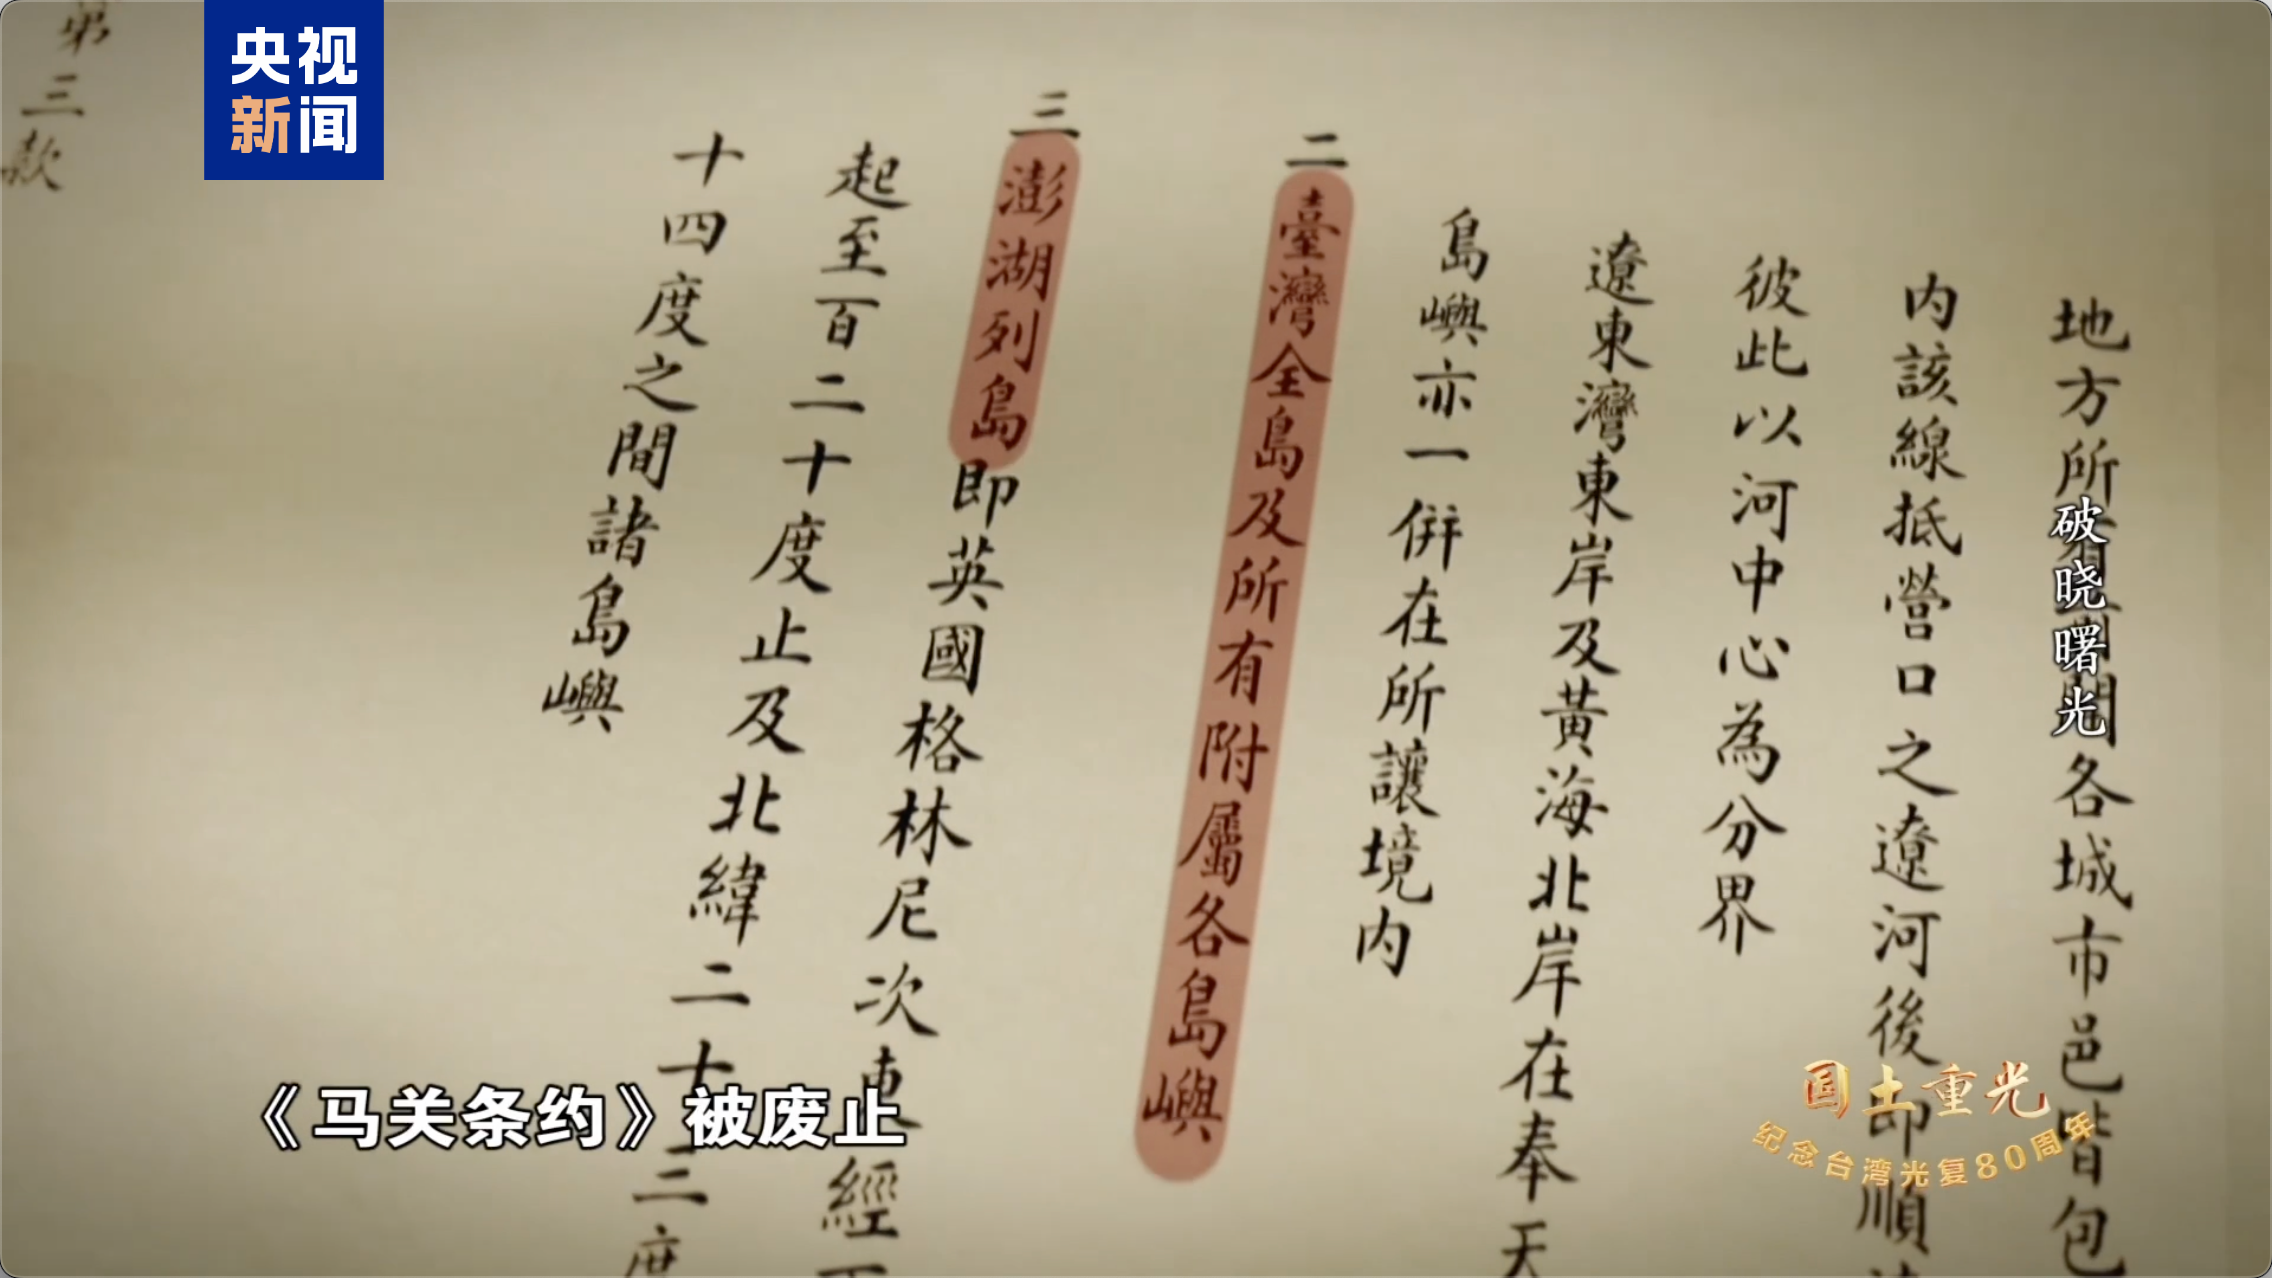 央视
新闻
地方所
各城市邑皆包
内該線抵營口之遼河後即順
彼此以河中心為分界
遼東灣東岸及黃海北岸在奉天
島嶼亦一併在所讓境内
二臺灣全島及所有附屬各島嶼
三澎湖列島即英國格林尼次東經
起至百二十度止及北緯二十三度
十四度之間諸島嶼
第三款
破晓曙光
《马关条约》被废止
国土重光
纪念台湾光复80周年